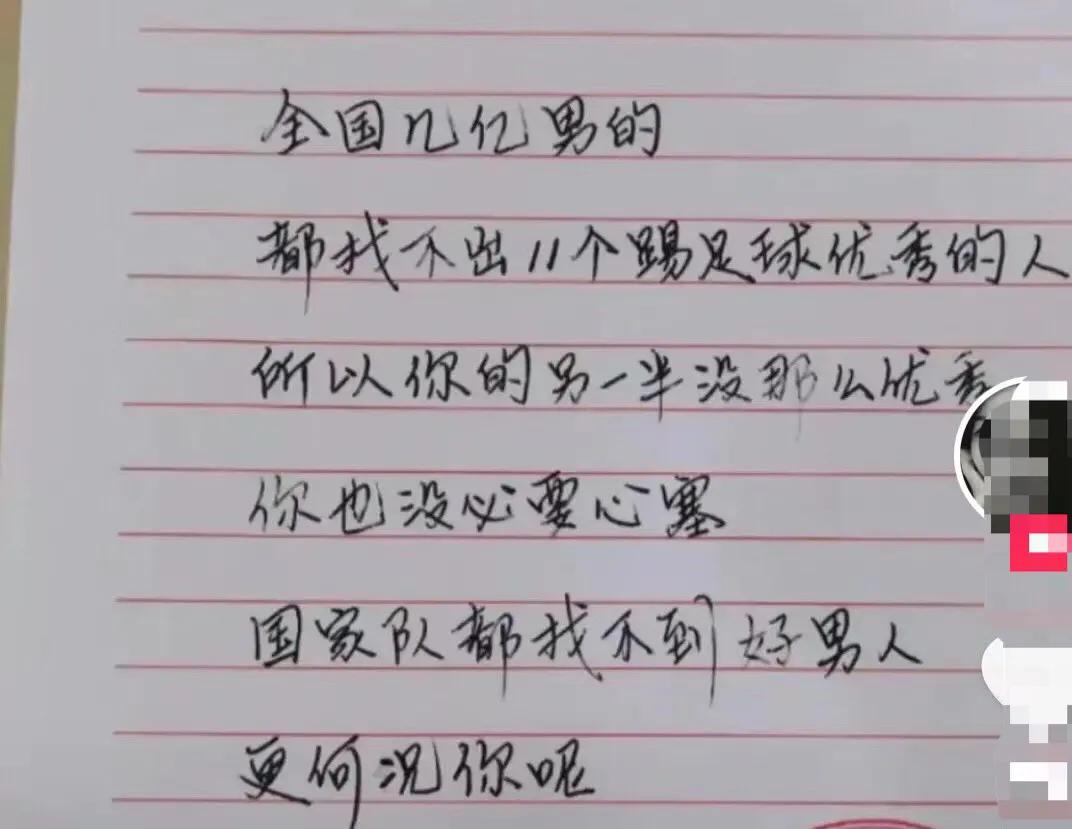 全国几亿男的
都找不出11个踢足球优秀的人
所以你的另一半没那么优秀
你也没必要心塞
国家队都找不到好男人
更何况你呢